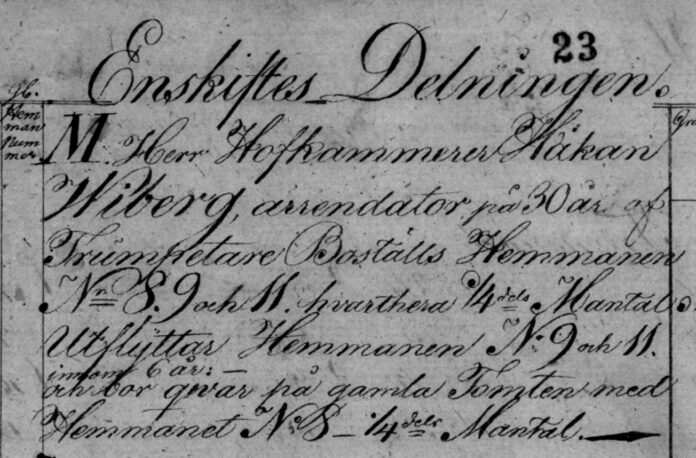 23
Enskiftes Delningen.
Litt.
Hem
man
Num
mer
M. Herr Hofkammerer Håkan
Wiberg, arrendator på 30 år af
Trumpetare Boställs Hemmanen
Nr 8. 9 och 11. hvarthera 1/4 dels Mantal
Utflyttar Hemmanen No: 9 och 11.
innom 6 år: —
och bor qwar på gamla Tomten med
Hemmanet No 8 — 1/4 dels Mantal. —